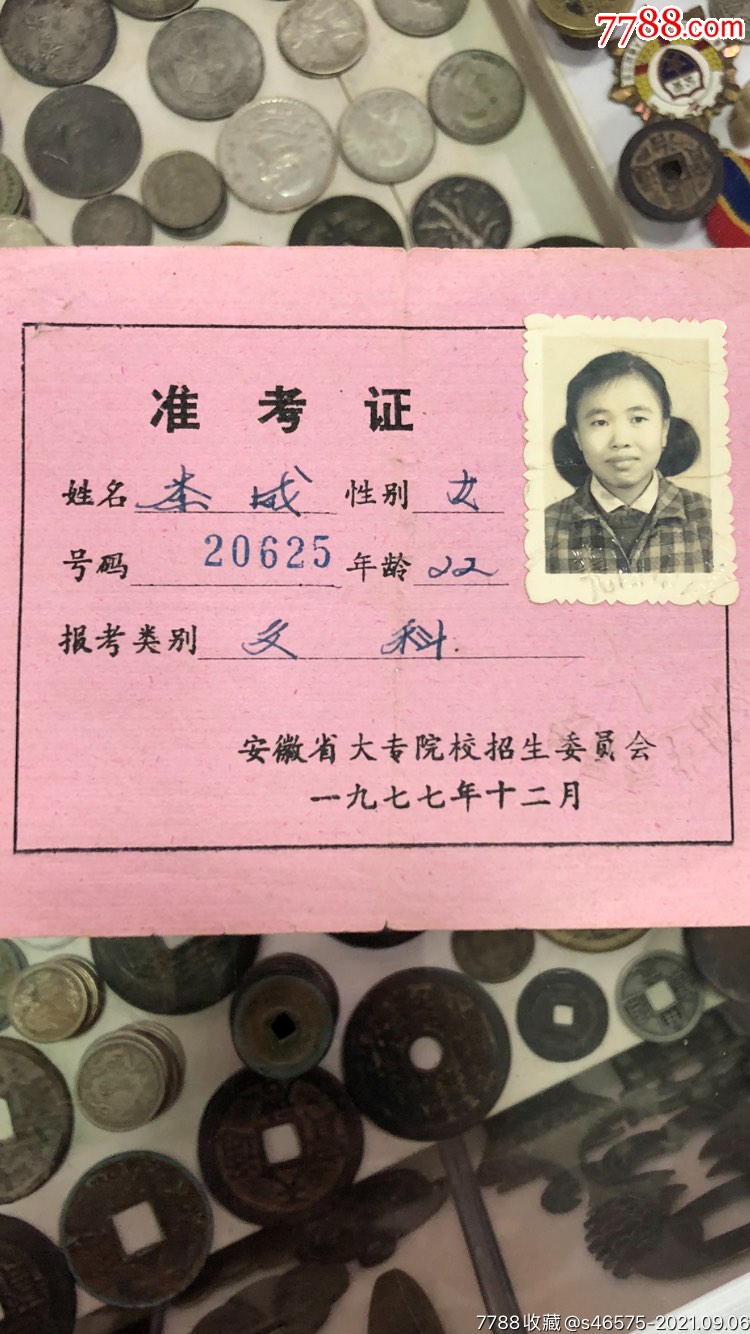 7788.com
准考证
姓名 性别 女
号码 20625 年龄 22
报考类别 文科
安徽省大专院校招生委员会
一九七七年十二月
7788收藏@s46575-2021.09.06